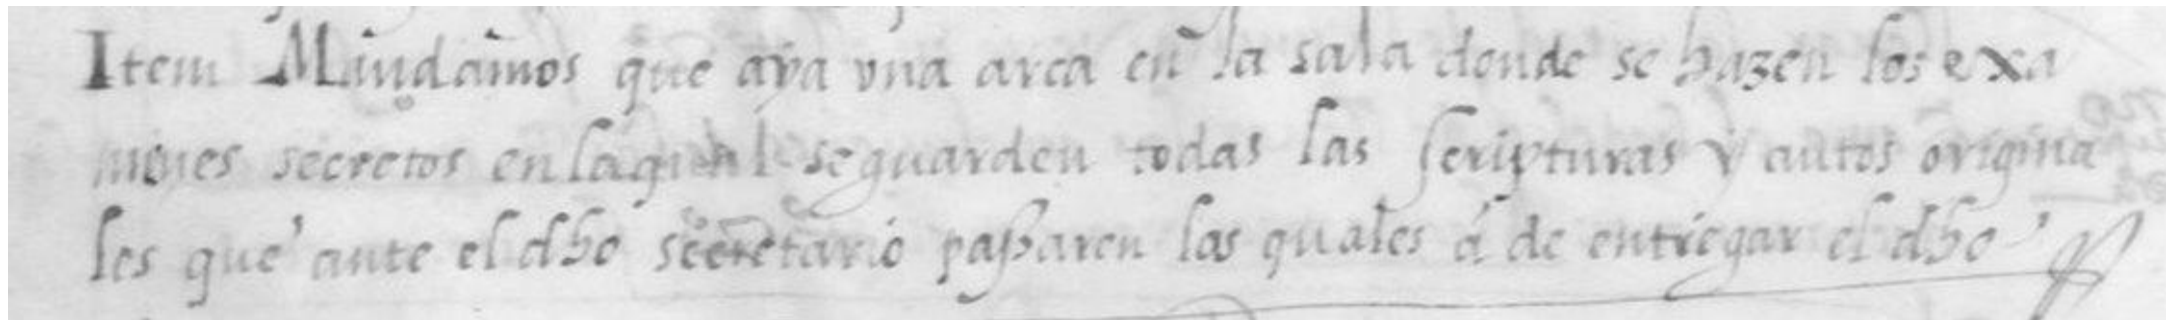 Item Mandamos que aya vna arca en la sala donde se hazen los exa
mines secretos en la qual se guarden todas las scripturas y autos origina
les que ante el dho secretario passaren las quales á de entregar el dho